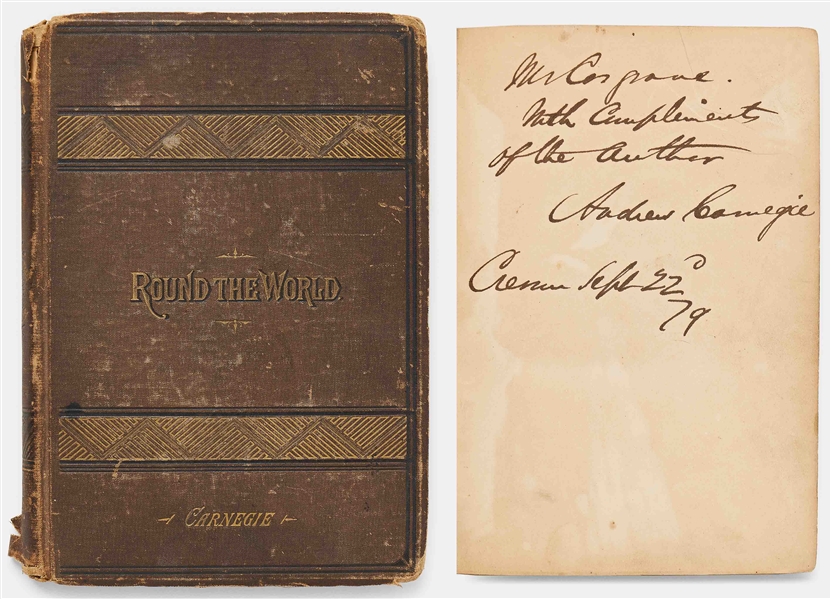 ROUND THE WORLD.
CARNEGIE
Mr Cosgrave.
With Compliments
of the Author
Andrew Carnegie
Cresson Sept 22d
/79